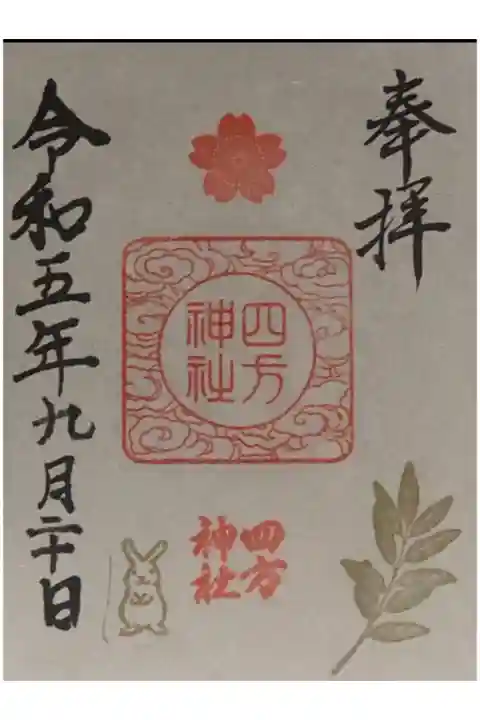 奉拝
四方
神社
四方
神社
令和五年九月二十日